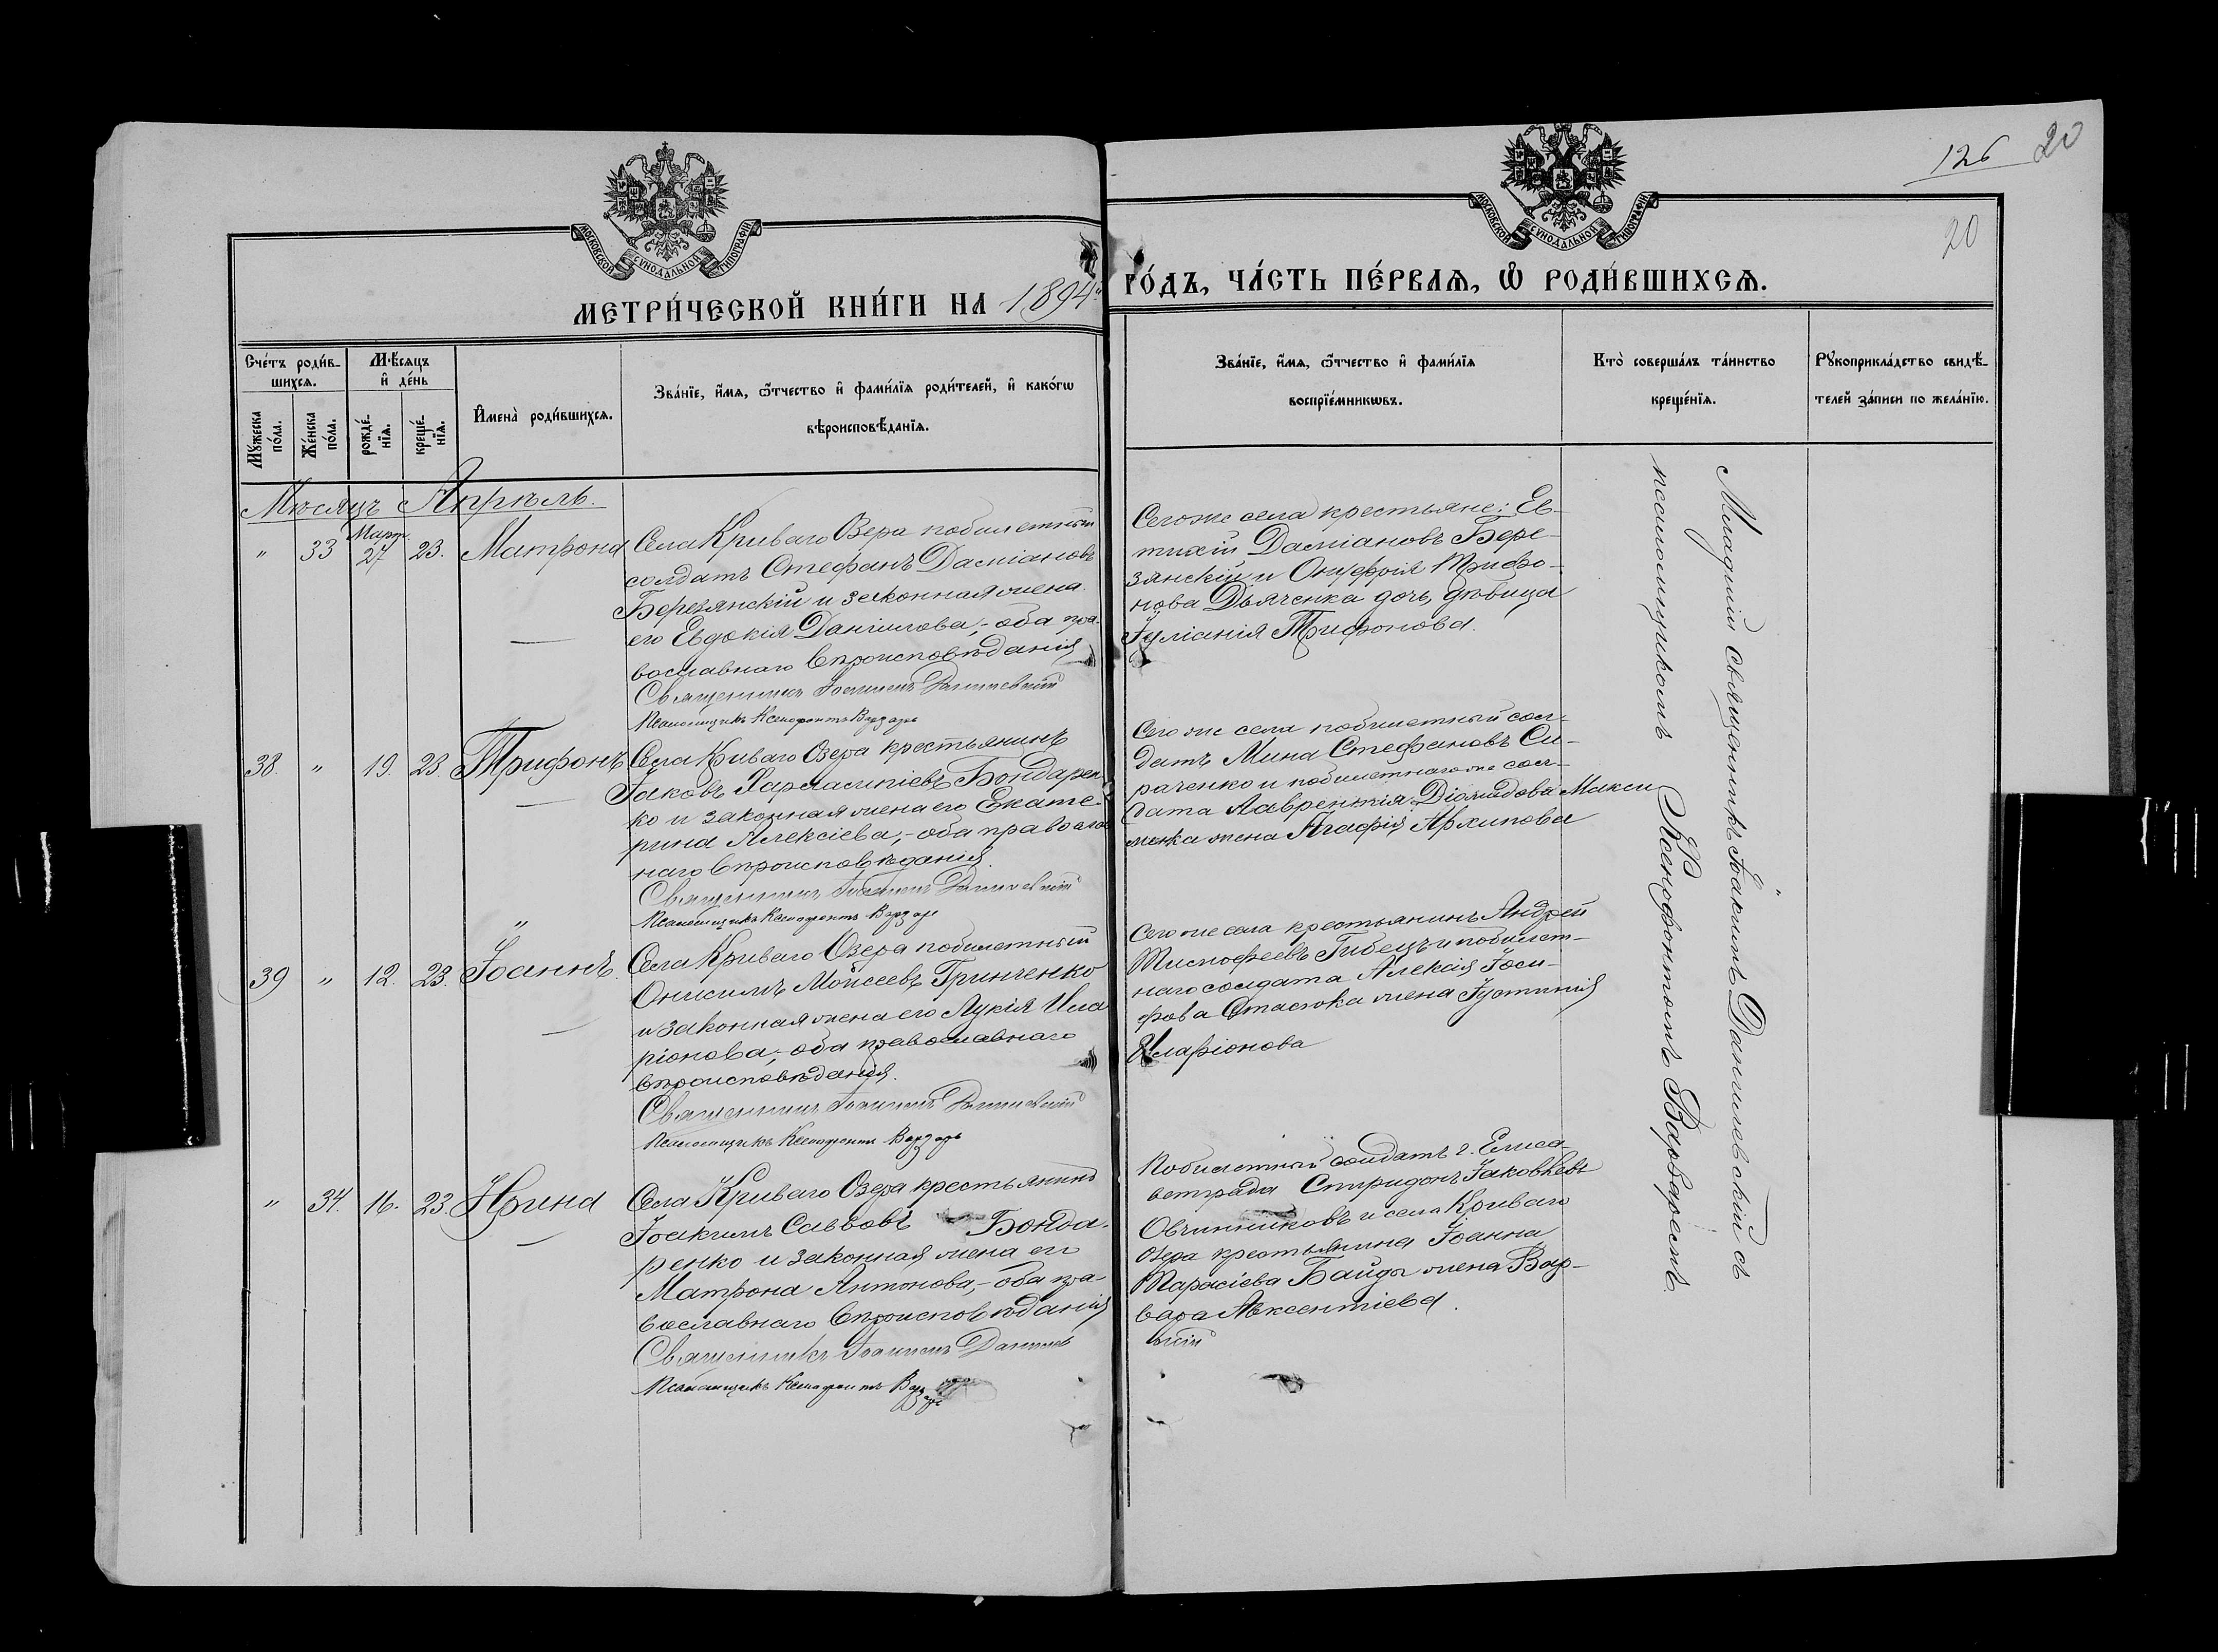 126 20
20
МОСКОВСКОЙ СУНОДАЛЬНОЙ ТИПОГРАФІИ
МОСКОВСКОЙ СУНОДАЛЬНОЙ ТИПОГРАФІИ
МЕТРИ́ЧЕСКОЙ КНИ́ГИ НА 1894 ГО́ДЪ, ЧА́СТЬ ПЕ́РВАѦ, Ѡ҆ РОДИ́ВШИХСѦ.
Сче́тъ роди́в-
шихсѧ.
Мѣ́сѧцъ
и҆ де́нь
Мꙋ́жеска по́ла.
Же́нска по́ла.
рожде́-
нїѧ.
креще́-
нїѧ.
И҆мена̀ роди́вшихсѧ.
Зва́нїе, и҆́мѧ, ѻ҆́тчество и҆ фами́лїѧ роди́телей, и҆ како́гѡ
вѣроисповѣ́данїѧ.
Зва́нїе, и҆́мѧ, ѻ҆́тчество и҆ фами́лїѧ
воспрїе́мникѡвъ.
Кто̀ соверша́лъ та́инство
креще́нїѧ.
Рꙋкоприкла́дство свидѣ́-
телей за́писи по жела́нїю.
Мѣсяцъ Апрѣль.
" 33 Март. 27 23. Матрона
Села Криваго Озера побилетный
солдатъ Стефанъ Даміановъ
Березянскій и законная жена
его Евдокія Даніилова,- оба пра-
вославнаго вѣроисповѣданія
Священникъ Іоакимъ Данилевскій
Псаломщикъ Ксенофонтъ Варзарь
Сегоже села крестьяне: Ев-
тихій Даміановъ Бере-
зянскій и Онуфрія Трифо-
нова Дьяченка дочь, дѣвица
Іуліанія Трифонова.
38. " 19. 23. Трифонъ
Села Криваго Озера крестьянинъ
Іаковъ Харлампіевъ Бондарен-
ко и законная жена его Екате-
рина Алексіева,- оба православ
наго вѣроисповѣданія.
Священникъ Іоакимъ Данилевскій
Псаломщикъ Ксенофонтъ Варзарь
Сего же села побилетный сол-
датъ Мина Стефановъ Си-
раченко и побилетнаго же сол-
дата Лаврентія Діомидова Макси
менка жена Агафія Архипова
"
39 " 12. 23. Іоаннъ.
Села Криваго Озера побилетный
Онисимъ Мойсеевъ Гринченко
и законная жена его Лукія Ила
ріонова,- оба православнаго
вѣроисповѣданія.
Священникъ Іоакимъ Данилевскій
Псаломщикъ Ксенофонтъ Варзарь
Сего же села крестьянинъ Андрей
Тимофеевъ Гибецъ и побилет-
наго солдата Алексія Іоси-
фова Стасюка жена Іустинія
Иларіонова
" 34. 16. 23. Ирина
Села Криваго Озера крестьянинъ
Іоакимъ Саввовъ Бонда-
ренко и законная жена его
Матрона Антонова,- оба пра-
вославнаго вѣроисповѣданія
Священникъ Іоакимъ Данилев
скій
Псаломщикъ Ксенофонтъ Варзарь
Побилетный солдатъ г. Елиса-
ветграда Спиридонъ Іаковлевъ
Овчинниковъ и села Криваго
Озера крестьянина Іоанна
Тарасіева Байды жена Вар-
вара Авксентіева.
Младшій священникъ Іоакимъ Данилевскій съ
псаломщикомъ Ксенофонтомъ Варзаремъ.